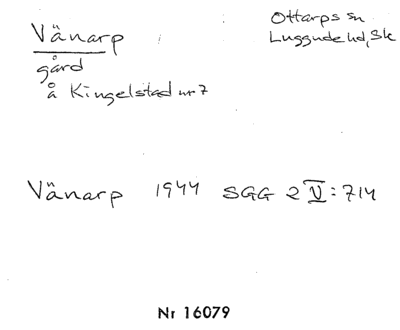 Vänarp
Ottarps sn
Luggude hd, Sk
gård
å Kingelstad nr 7
Vänarp 1944 SGG 2 V: 714
Nr 16079